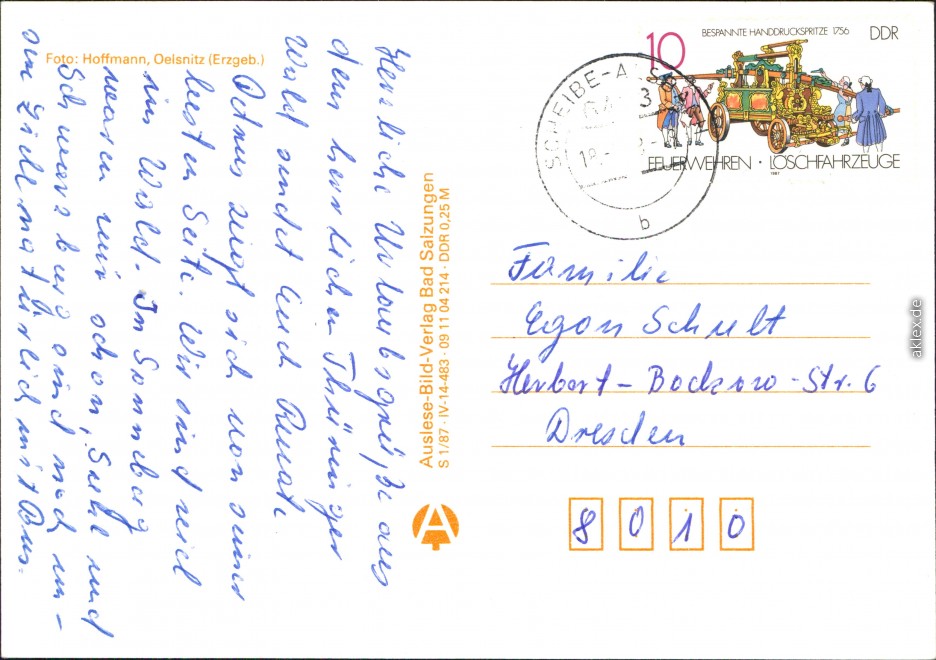 Foto: Hoffmann, Oelsnitz (Erzgeb.)
Herzliche Urlaubsgrüße aus
dem herrlichen Thüringer
Wald sendet Euch Renate.
zeigt sich von seiner
besten Seite. Wir sind viel
im Wald. In Sonneberg
waren wir schon, Suhl und
Schwarzburg sind noch un-
sere Ziele natürlich mit Bus.
Auslese-Bild-Verlag Bad Salzungen
S 1/87 · IV-14-483 · 09 11 04 214 · DDR 0,25 M
A
10
BESPANNTE HANDDRUCKSPRITZE 1756
DDR
FEUERWEHREN · LÖSCHFAHRZEUGE
1987
SCHEIBE-A
18
b
Familie
Egon Schult
Herbert-Bochow-Str. 6
Dresden
8010
aklex.de